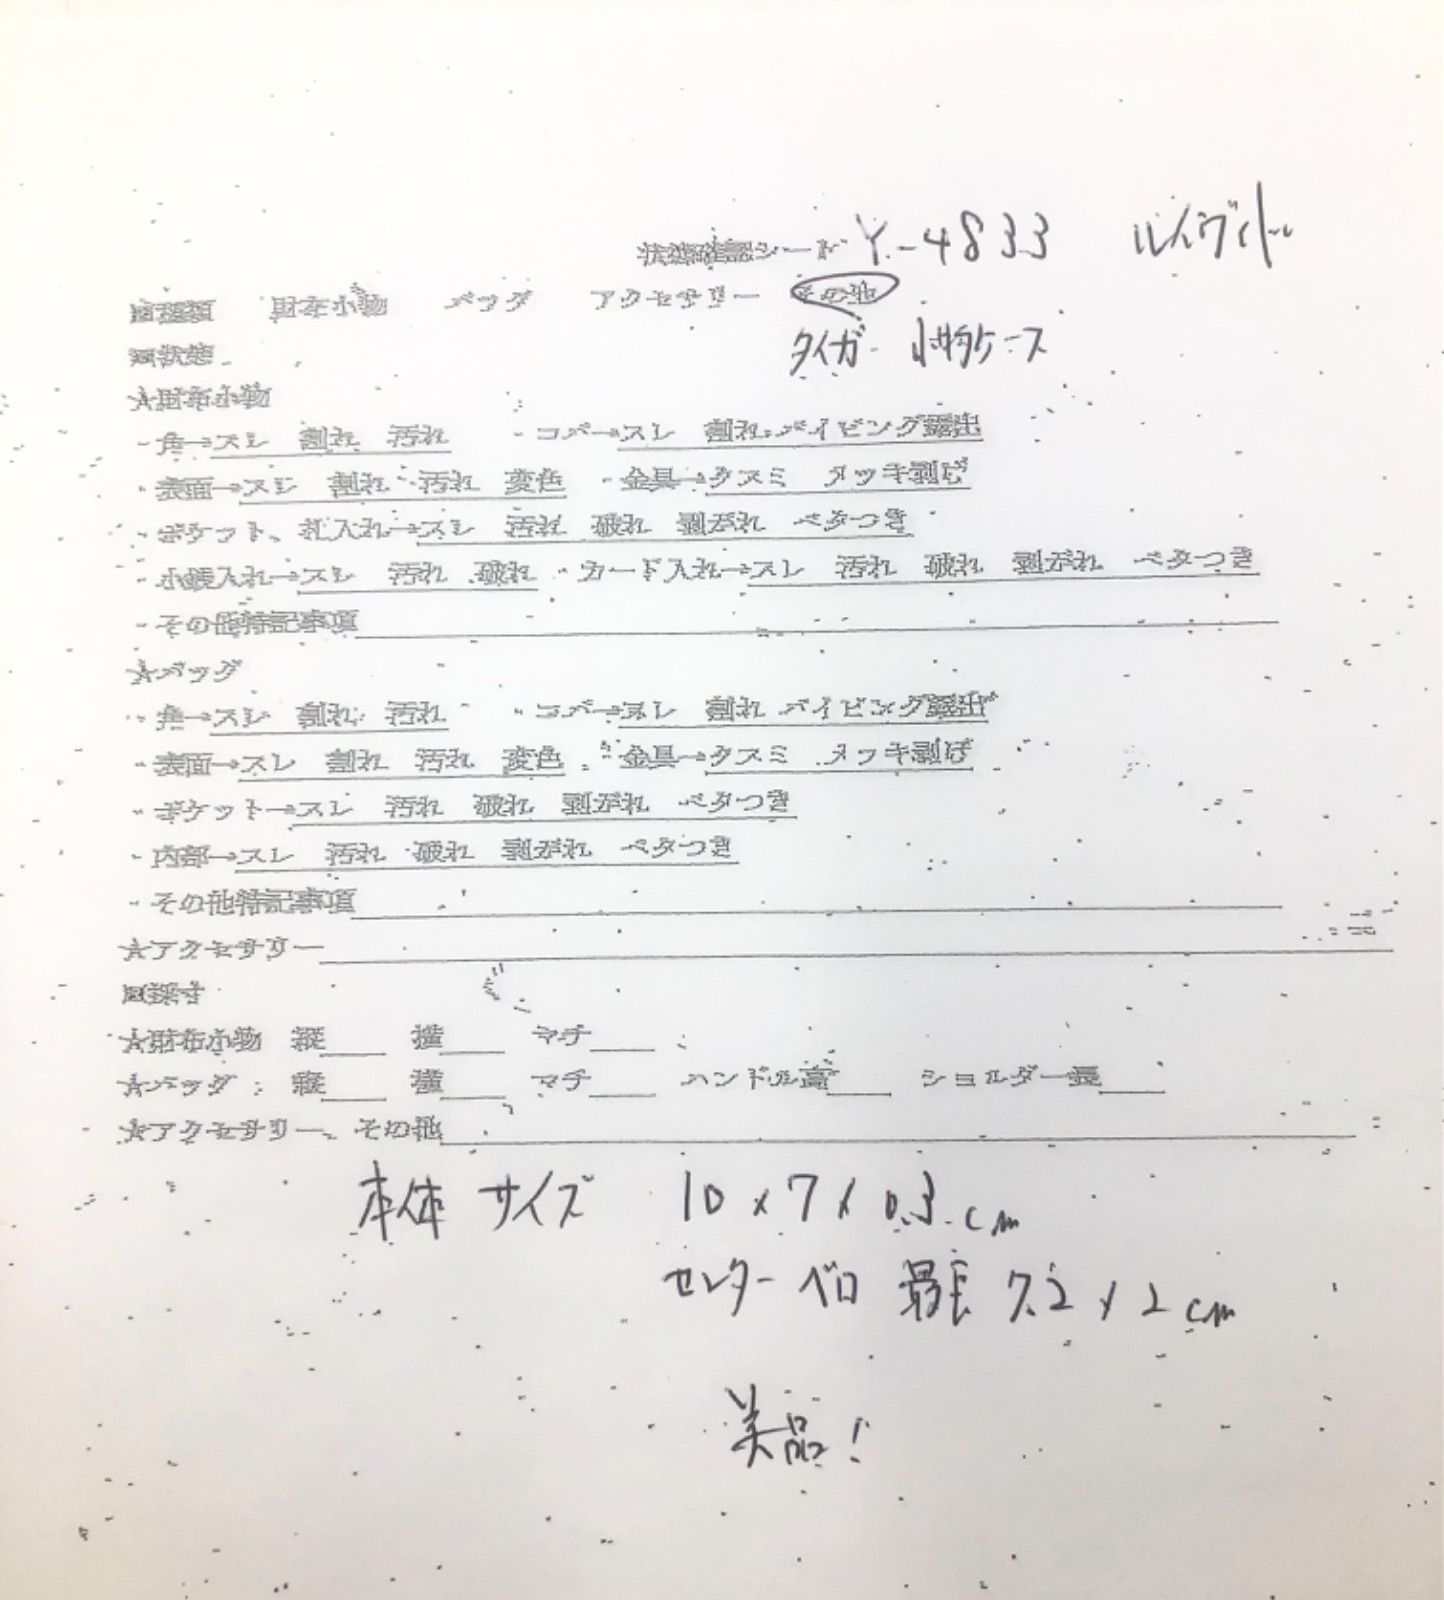 状態確認シート Y-4833 ルイヴィトン
■種類 財布小物 バッグ アクセサリー その他
■状態 タイガ 小物ケース
★財布小物
・角→スレ 割れ 汚れ ・コバ→スレ 割れ パイピング露出
・表面→スレ 割れ 汚れ 変色 ・金具→クスミ メッキ剥げ
・ポケット、札入れ→スレ 汚れ 破れ 剥がれ ベタつき
・小銭入れ→スレ 汚れ 破れ ・カード入れ→スレ 汚れ 破れ 剥がれ ベタつき
・その他特記事項
★バッグ
・角→スレ 割れ 汚れ ・コバ→スレ 割れ パイピング露出
・表面→スレ 割れ 汚れ 変色 ・金具→クスミ メッキ剥げ
・ポケット→スレ 汚れ 破れ 剥がれ ベタつき
・内部→スレ 汚れ 破れ 剥がれ ベタつき
・その他特記事項
★アクセサリー
■採寸
★財布小物 縦 横 マチ
★バッグ 縦 横 マチ ハンドル高 ショルダー長
★アクセサリー、その他
本体サイズ 10×7×0.3cm
センターベロ 最長 7.2×2cm
美品!